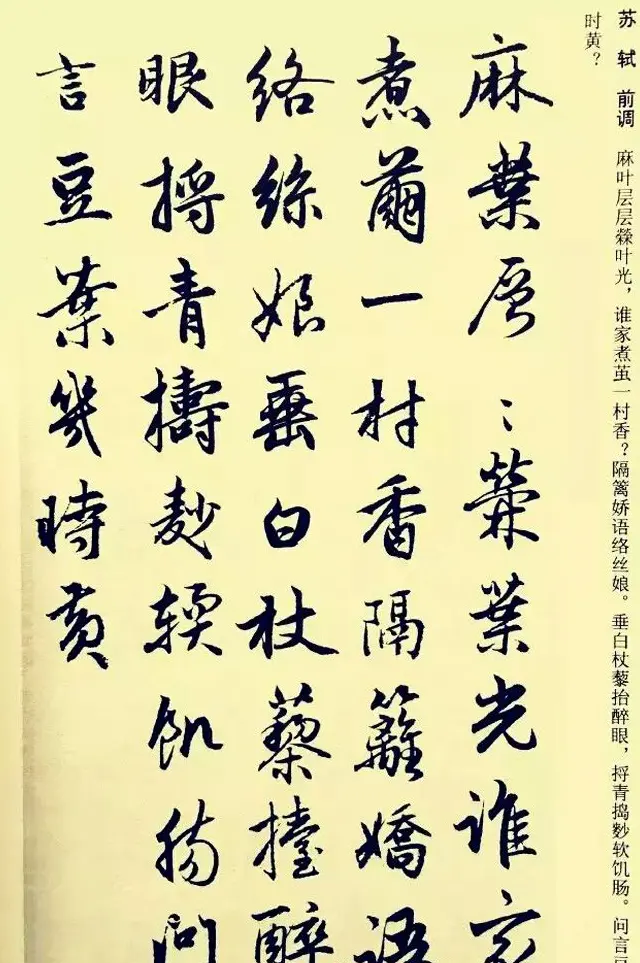 苏轼 前调 麻叶层层檾叶光，谁家煮茧一村香？隔篱娇语络丝娘。垂白杖藜抬醉眼，捋青捣麨软饥肠。问言
时黄？
麻葉層〻檾葉光誰家
煮繭一村香隔籬嬌語
絡絲娘垂白杖藜擡醉
眼捋青擣麨輭飢腸問
言豆葉幾時黄